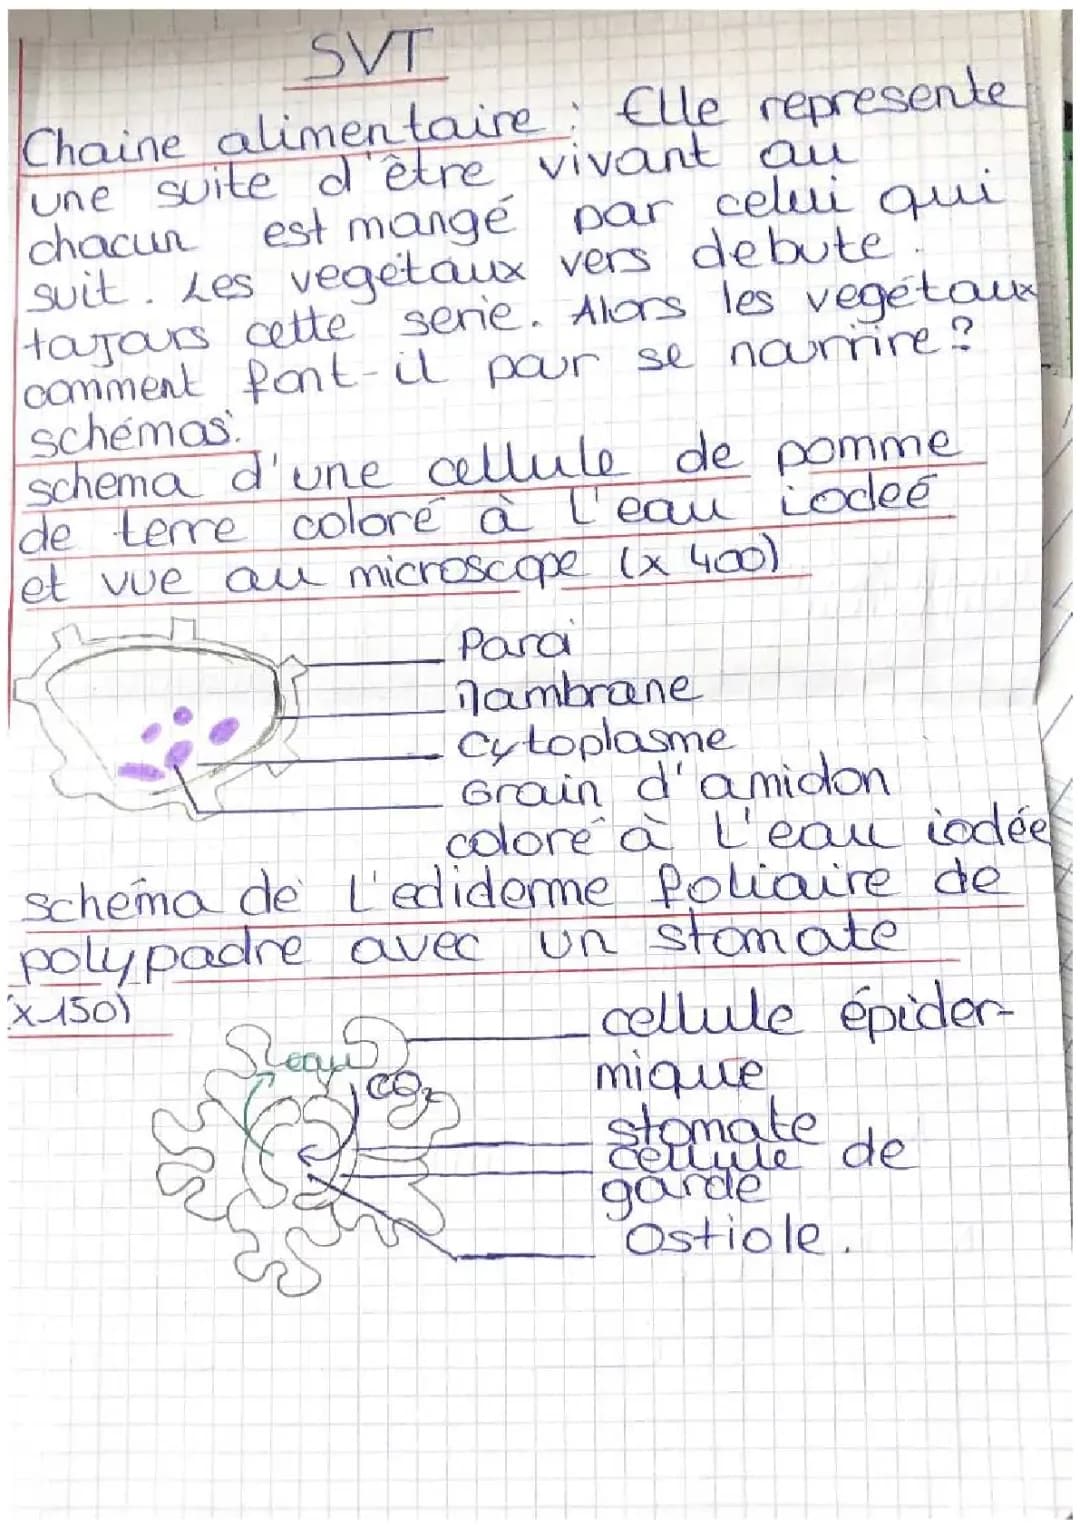 SVT
Chaine alimentaire : Elle represente
une suite d'être vivant au
chacun est mangé par celui qui
suit. Les vegétaux vers debute.
toujours cette serie. Alors les vegétaux
comment font-il pour se nourrire ?
schémas:
schema d'une cellule de pomme
de terre coloré à l'eau iodeé
et vue au microscope (x 400)
Paroi
Mambrane
Cytoplasme
Grain d'amidon
coloré à l'eau iodée
schéma de l'ediderme foliaire de
polypodre avec un stomate
(x150)
eau
CO2
cellule épider-
mique
stomate
cellule de
garde
Ostiole.